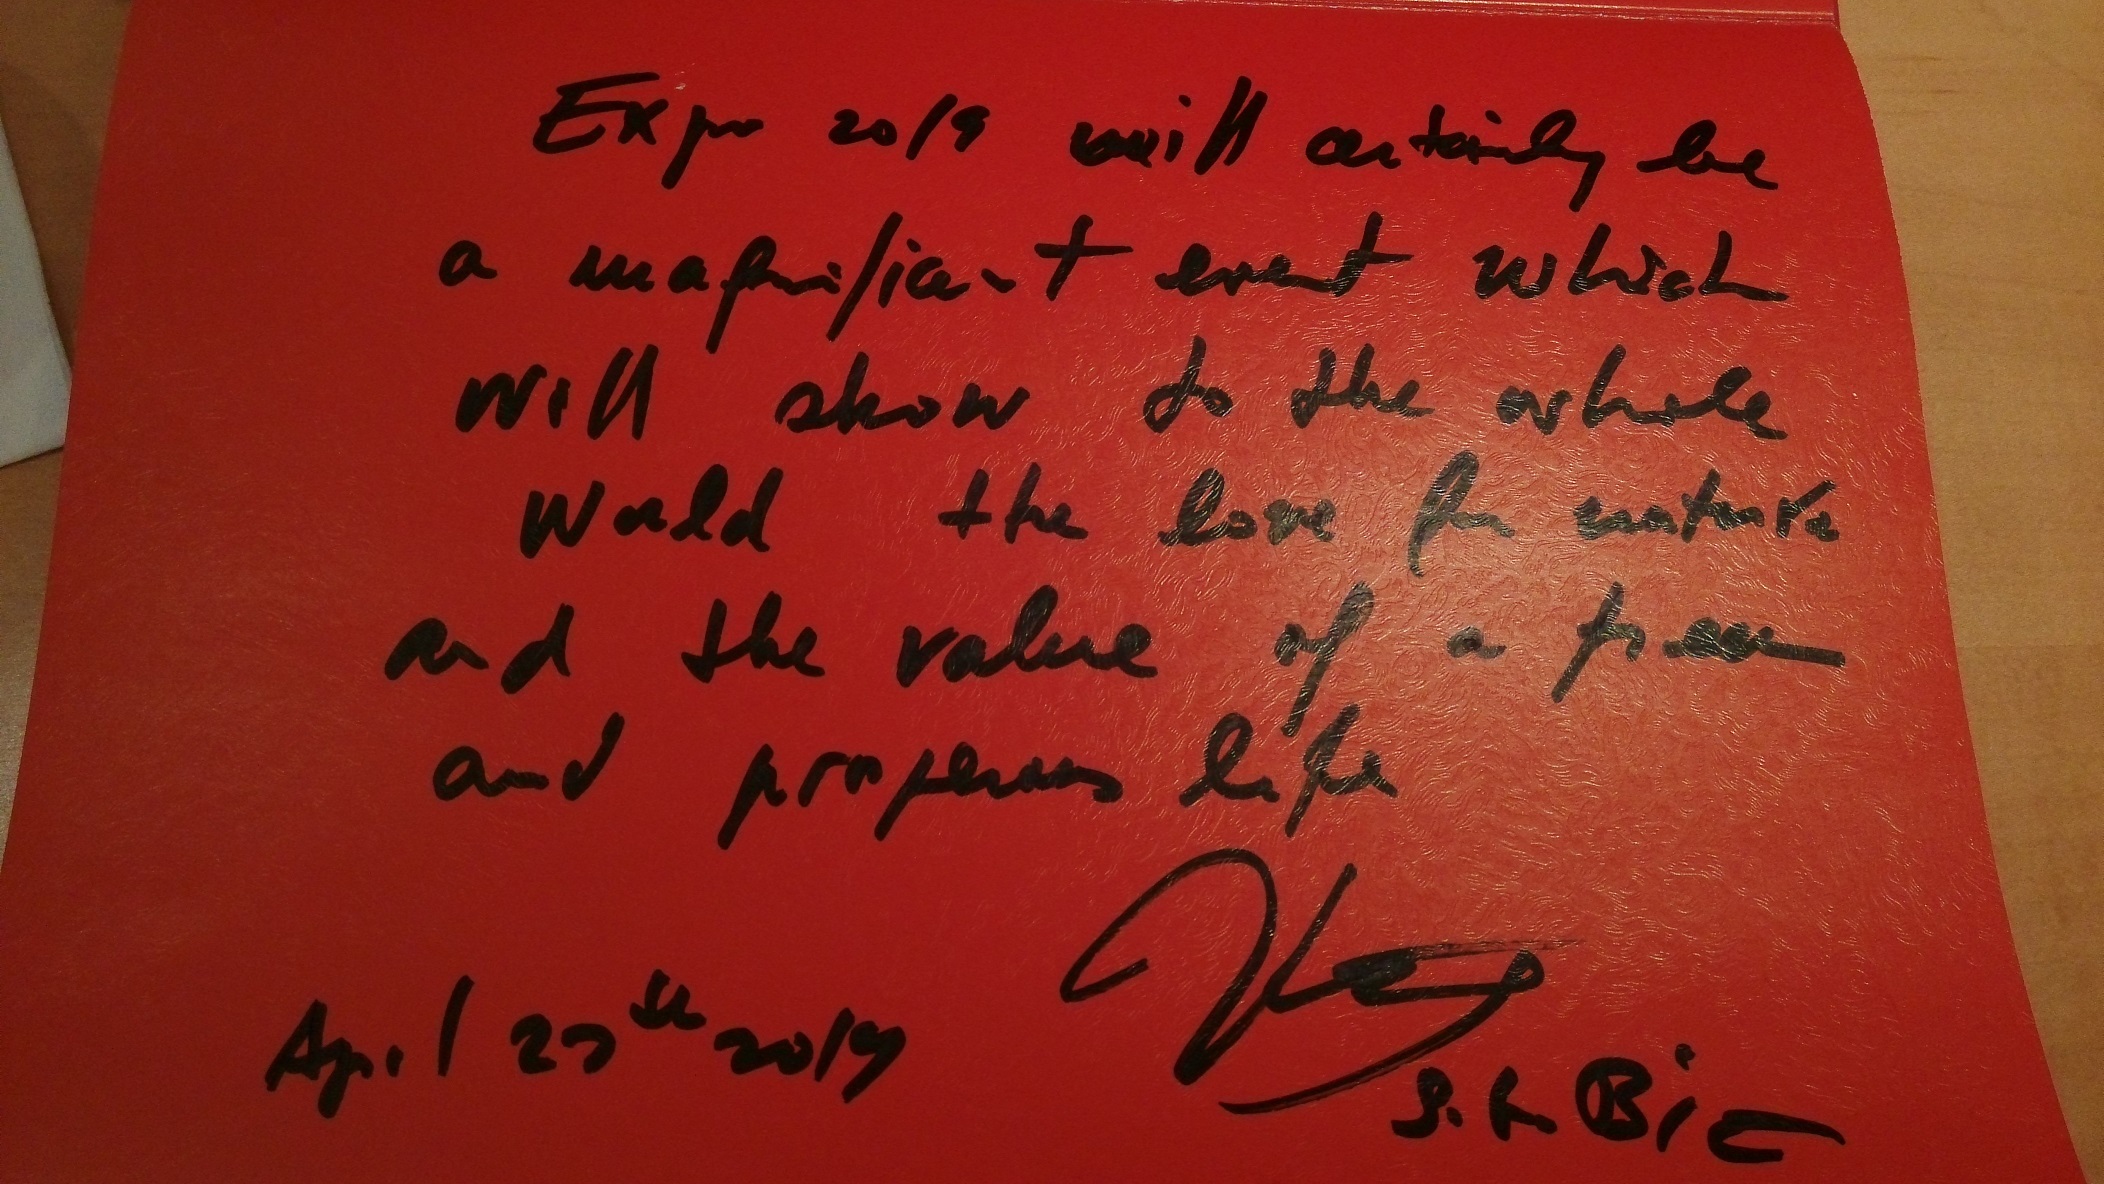 Expo 2019 will certainly be
a magnificant event which
will show to the whole
World the love for nature
and the value of a green
and prosperous life
April 25th 2019
BIE